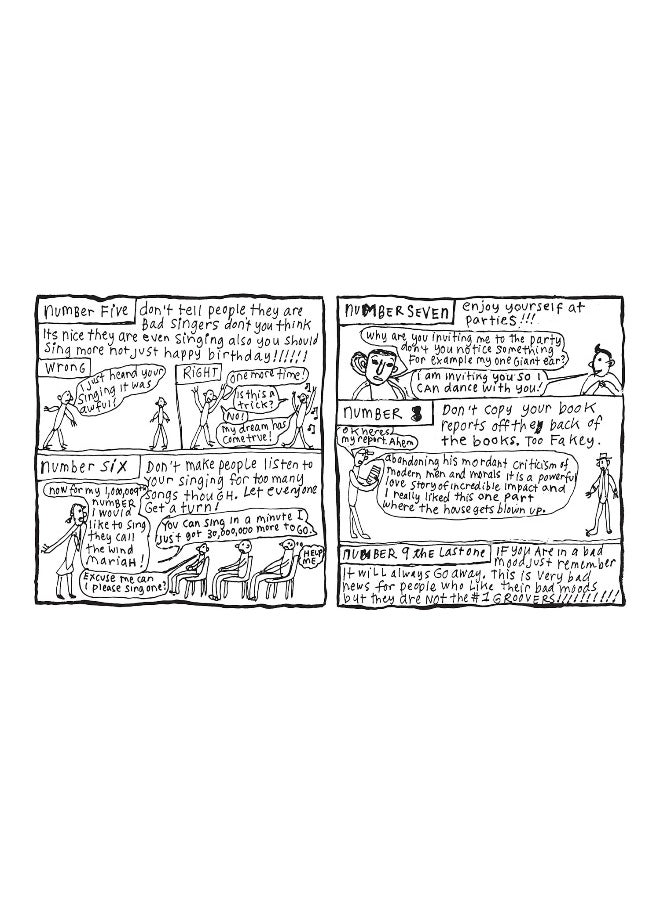 number Five
don't tell people they are
Bad singers don't you think
Its nice they are even singing also you should
Sing more not just happy birthday!!!!!!
Wrong
I just heard your
singing it was
awful!
RIGHT
one more time!
Is this a
trick?
No!
my dream has
come true!
number six
Don't make people listen to
your singing for too many
songs though. Let everyone
Get a turn!
now for my 1,000,000th
number
I would
like to sing
they call
the wind
mariah!
You can sing in a minute I
Just got 30,000,000 more to GO.
HELP
ME
Excuse me can
I please sing one?
number seven
enjoy yourself at
parties!!!
Why are you inviting me to the party
don't you notice something
for example my one Giant ear?
I am inviting you so I
can dance with you!
number 8
Don't copy your book
reports off the back of
the books. Too Fakey.
OK heres
my report. Ahem
abandoning his mordant criticism of
modern men and morals it is a powerful
love story of incredible impact and
I really liked this one part
where the house gets blown up.
number 9 the Last one
IF you Are in a bad
mood Just remember
It will always Go away. This is very bad
news for people who like their bad moods
but they are not the #1 GROOVERS!!!!!!!!!!